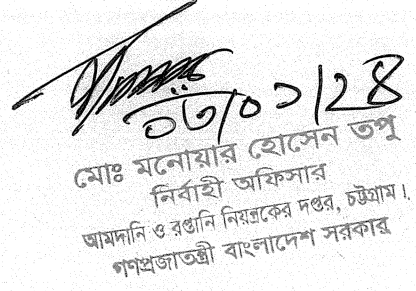 ০৩/০১/২৪
মোঃ মনোয়ার হোসেন তপু
নির্বাহী অফিসার
আমদানি ও রপ্তানি নিয়ন্ত্রকের দপ্তর, চট্টগ্রাম।
গণপ্রজাতন্ত্রী বাংলাদেশ সরকার